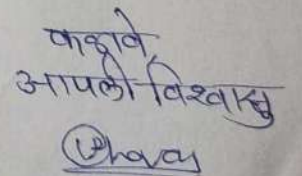 कळावे,
आपली विश्वासु